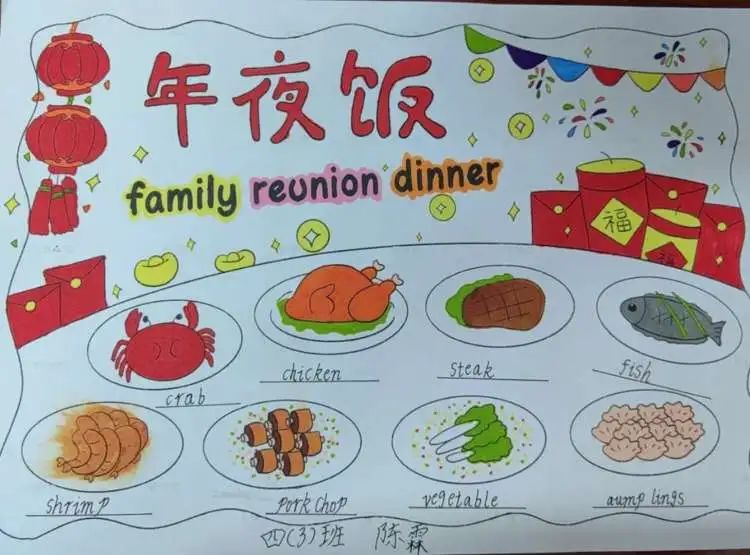 年夜饭
family reunion dinner
福
福
crab
chicken
steak
fish
shrimp
Pork Chop
vegetable
aumplings
四(3)班 陈霖